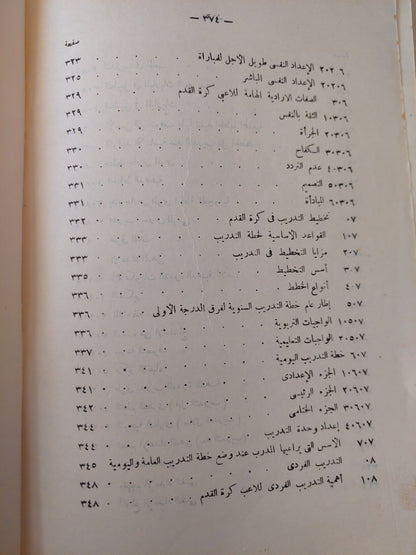 — ٣٧٤ —
صفحة
٢٠٢٠٦ الإعداد النفسى طويل الأجل للمباراة ٣٢٣
٢٠٢٠٦ الإعداد النفسى المباشر ٣٢٥
٣٠٦ الصفات الارادية الهامة للاعبى كرة القدم ٣٢٩
١٠٣٠٦ الثقة بالنفس ٣٢٩
٢٠٣٠٦ الجرأة ٣٢٩
٣٠٣٠٦ الكفاح ٣٣٠
٤٠٣٠٦ عدم التردد ٣٣٠
٥٠٣٠٦ التصميم ٣٣١
٦٠٣٠٦ المبادأة ٣٣١
٠٧ تخطيط التدريب فى كرة القدم ٣٣٢
١٠٧ القواعد الأساسية لخطة التدريب ٣٣٣
٢٠٧ مزايا التخطيط فى التدريب ٣٣٣
٣٠٧ أسس التخطيط ٣٣٥
٤٠٧ أنواع الخطط ٣٣٦
٥٠٧ إطار عام خطة التدريب السنوية لفرق الدرجة الأولى ٣٣٦
١٠٥٠٧ الواجبات التربوية ٣٣٦
٢٠٥٠٧ الواجبات التعليمية ٣٣٧
٦٠٧ خطة التدريب اليومية ٣٤١
١٠٦٠٧ الجزء الإعدادى ٣٤١
٢٠٦٠٧ الجزء الرئيسى ٣٤٢
٣٠٦٠٧ الجزء الختامى ٣٤٤
٤٠٦٠٧ إعداد وحدة التدريب ٣٤٤
٧٠٧ الأسس التى يراعيها المدرب عند وضع خطة التدريب العامة واليومية ٣٤٥
٠٨ التدريب الفردى ٣٤٨
١٠٨ أهمية التدريب الفردى للاعب كرة القدم ٣٤٨